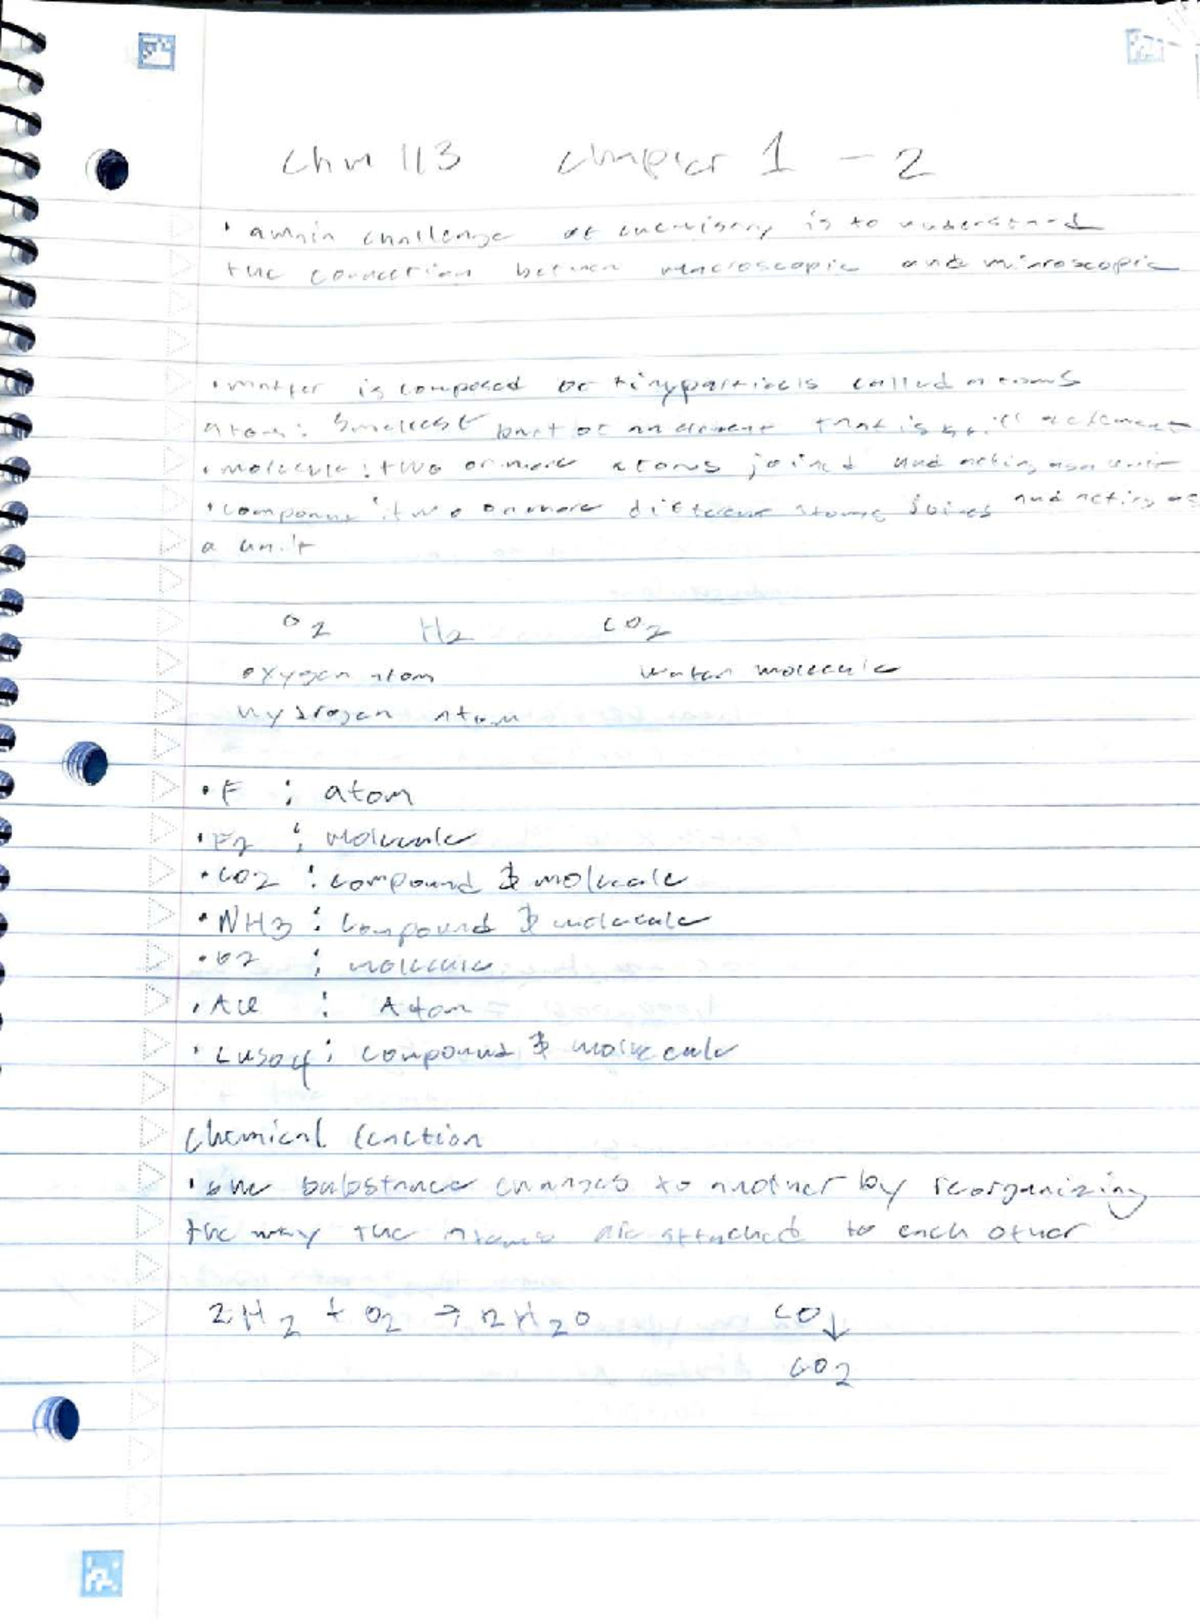 Chm 113 chapter 1 - 2
• a main challenge of chemistry is to understand
the connection between macroscopic and microscopic
• matter is composed of tiny particles called atoms
atom: smallest part of an element that is still element
• molecule: two or more atoms joined and acting as a unit
• compound: two or more different atoms joined and acting as
a unit
O2 H2 CO2
oxygen atom water molecule
hydrogen atom
• F : atom
• F2 : molecule
• CO2 : compound & molecule
• NH3 : compound & molecule
• O2 : molecule
• : Atom
• CuSO4 : compound & molecule
Chemical reaction
• one substance changes to another by reorganizing
the way the atoms are attached to each other
2H2 + O2 → 2H2O CO
↓
CO2